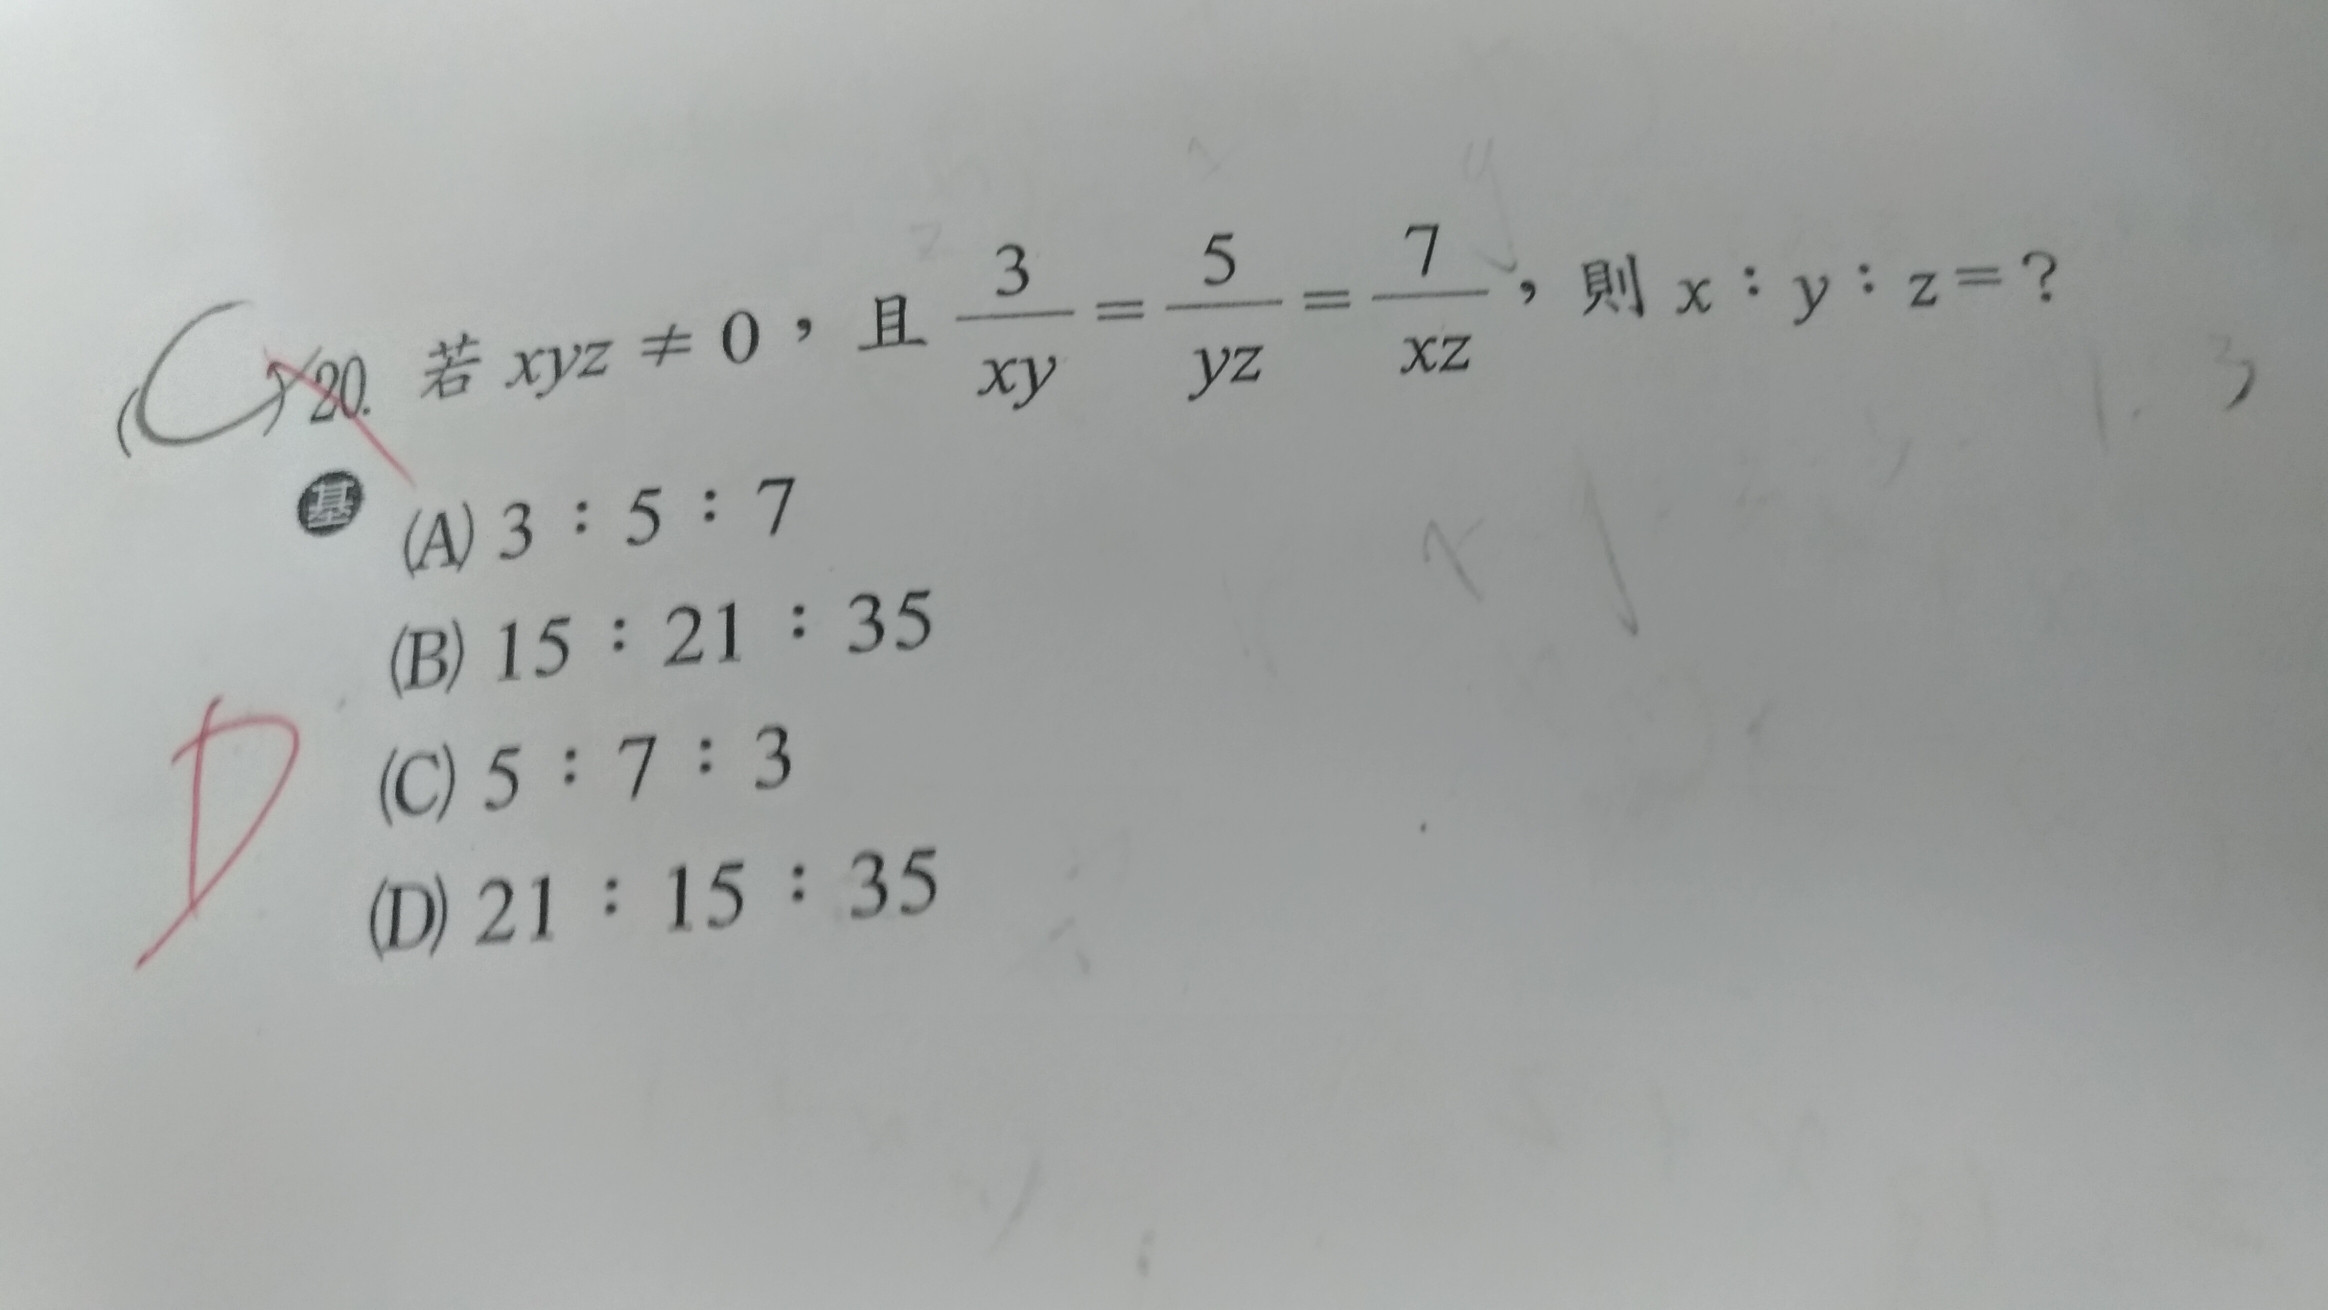 (C)20. 若 xyz ≠ 0，且 3/xy = 5/yz = 7/xz，則 x：y：z=？
基 (A) 3：5：7
(B) 15：21：35
(C) 5：7：3
D (D) 21：15：35